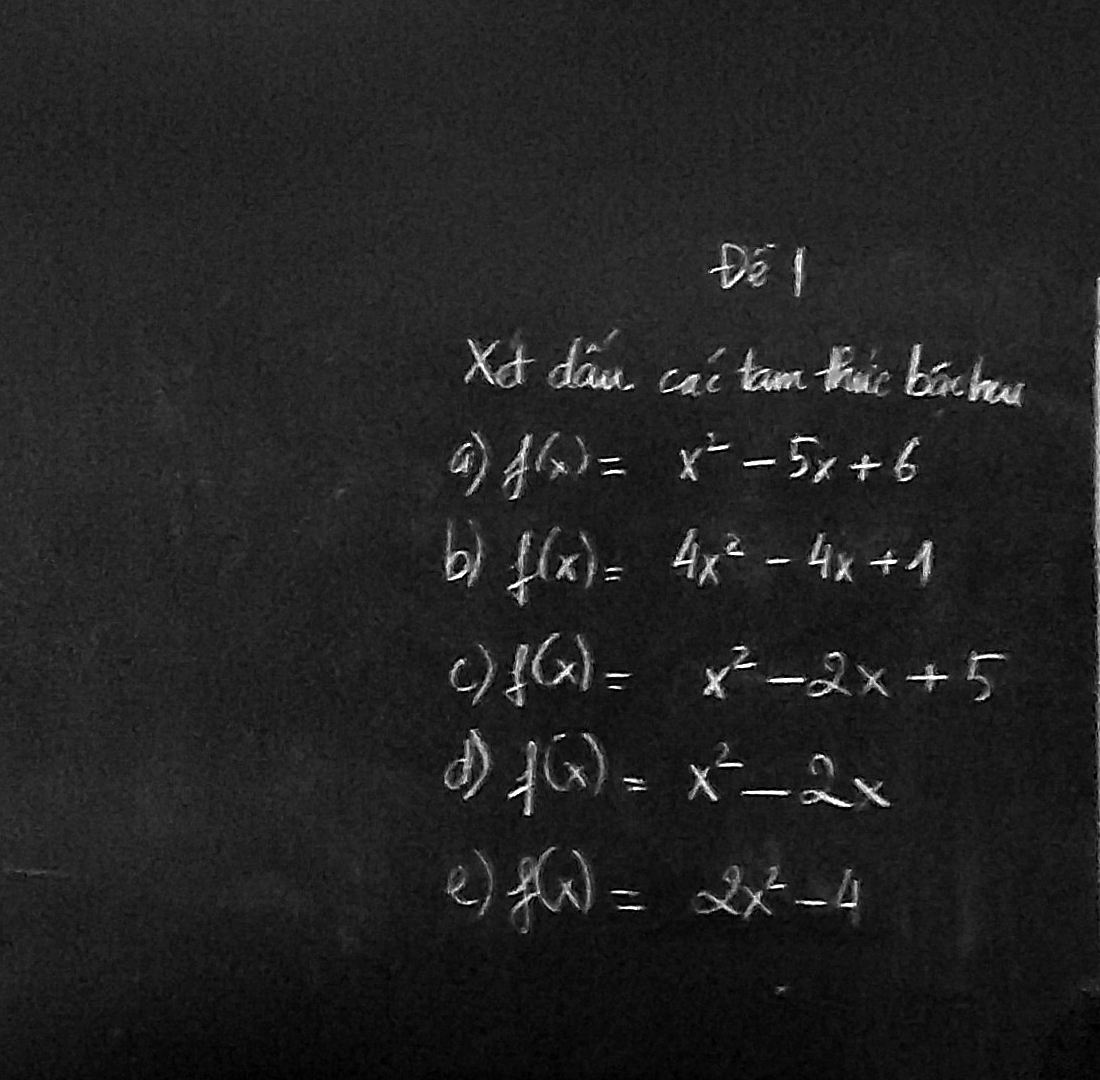 Đề 1
Xét dấu các tam thức bậc hai
a) f(x) = x² - 5x + 6
b) f(x) = 4x² - 4x + 1
c) f(x) = x² - 2x + 5
d) f(x) = x² - 2x
e) f(x) = 2x² - 4